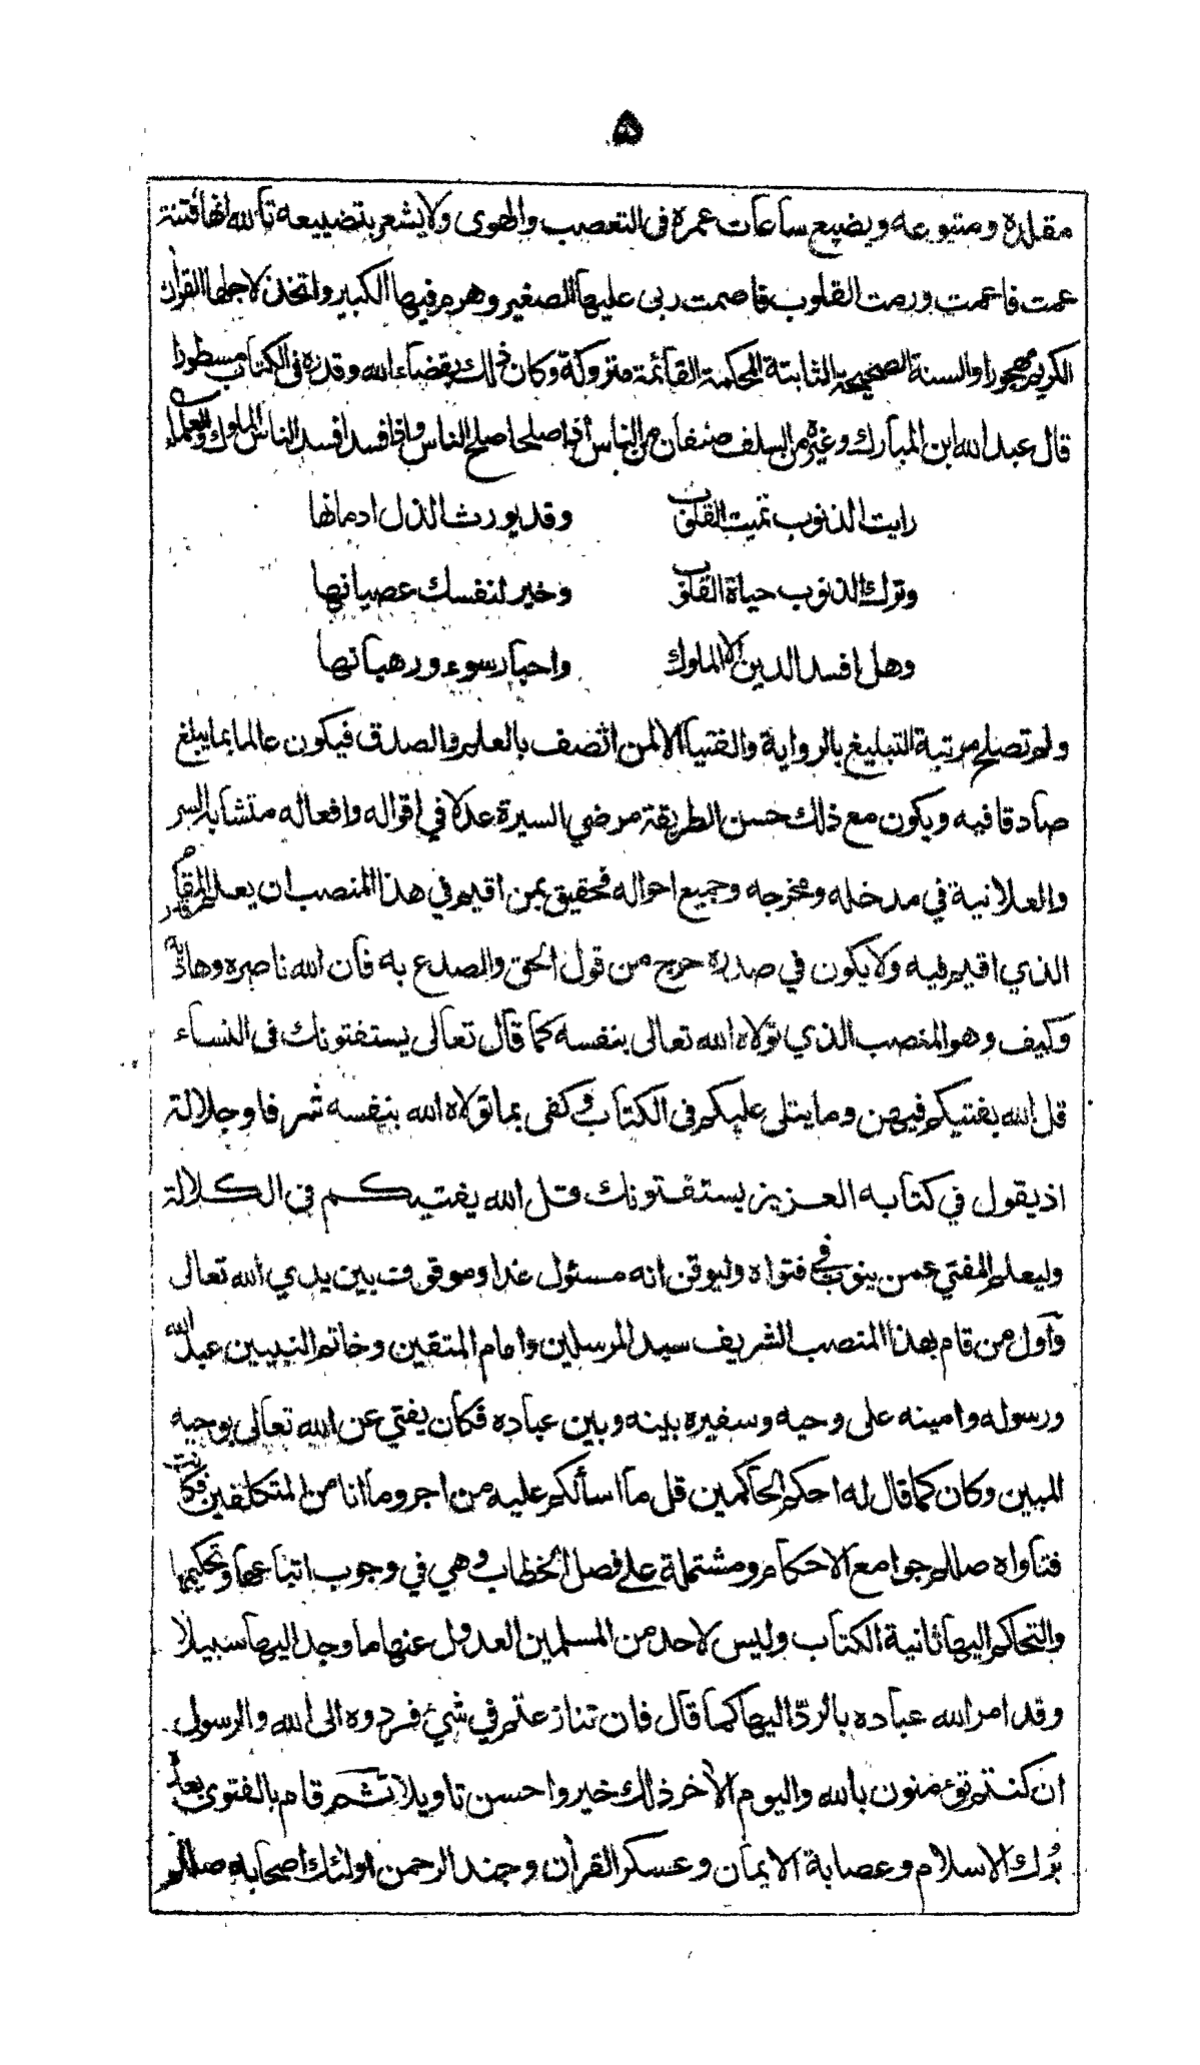 ٥
مقلده ومتبوعه ويضيع ساعات عمره فى التعصب والهوى ولا يشعر بتضييعه تالله انها فتنة
عمت فاعمت ورمت القلوب فاصمت ربى عليها الصغير وهرم فيها الكبير واتخذ لاجلها القرآن
الكريم مهجورا والسنة الصحيحة الثابتة المحكمة القائمة متروكة وكان ذلك بقضاء الله وقدره فى الكتاب مسطورا
قال عبد الله ابن المبارك وغيره من السلف صنفان من الناس اذا صلحا صلح الناس واذا فسدا فسد الناس الملوك والعلماء
رايت الذنوب تميت القلوب وقد يورث الذل ادمانها
وترك الذنوب حياة القلوب وخير لنفسك عصيانها
وهل افسد الدين الا الملوك واحبار سوء ورهبانها
ولم تصلح مرتبة التبليغ بالرواية والفتيا الا لمن اتصف بالعلم والصدق فيكون عالما بما يبلغ
صادقا فيه ويكون مع ذلك حسن الطريقة مرضي السيرة عدلا في اقواله وافعاله متشابه السر
والعلانية في مدخله ومخرجه وجميع احواله فحقيق بمن اقيم في هذا المنصب ان يعلم المقام
الذي اقيم فيه ولا يكون في صدره حرج من قول الحق والصدع به فان الله ناصره وهاديه
وكيف وهو المنصب الذي تولاه الله تعالى بنفسه كما قال تعالى يستفتونك فى النساء
قل الله يفتيكم فيهن وما يتلى عليكم فى الكتاب وكفى بما تولاه الله بنفسه شرفا وجلالة
اذ يقول في كتابه العزيز يستفتونك قل الله يفتيكم فى الكلالة
وليعلم المفتي عمن ينوب في فتواه وليوقن انه مسئول غدا وموقوف بين يدي الله تعالى
واول من قام بهذا المنصب الشريف سيد المرسلين وامام المتقين وخاتم النبيين عبد الله
ورسوله وامينه على وحيه وسفيره بينه وبين عباده فكان يفتي عن الله تعالى بوحيه
المبين وكان كما قال له احكم الحاكمين قل ما اسألكم عليه من اجر وما انا من المتكلفين فكانت
فتاواه صللم جوامع الاحكام ومشتملة على فصل الخطاب وهي في وجوب اتباعها وتحكيمها
والتحاكم اليها ثانية الكتاب وليس لاحد من المسلمين العدول عنها ما وجد اليها سبيلا
وقد امر الله عباده بالردّ اليها كما قال فان تنازعتم في شئ فردوه الى الله والرسول
ان كنتم تؤمنون بالله واليوم الاخر ذلك خير واحسن تاويلا ثم قام بالفتوى بعده
بُرك الاسلام وعصابة الايمان وعسكر القرآن وجند الرحمن اولئك اصحابه صللم